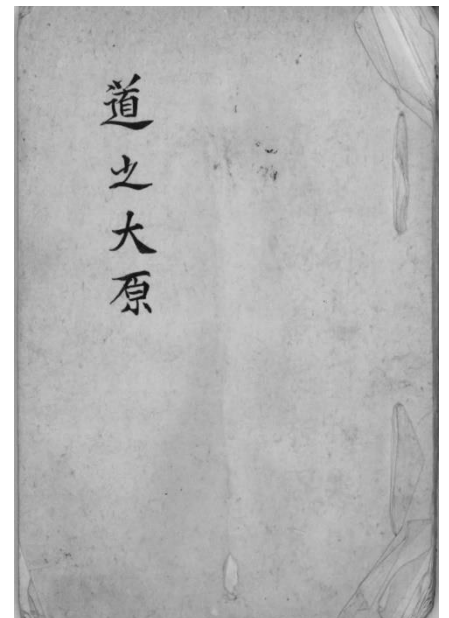 道之大原